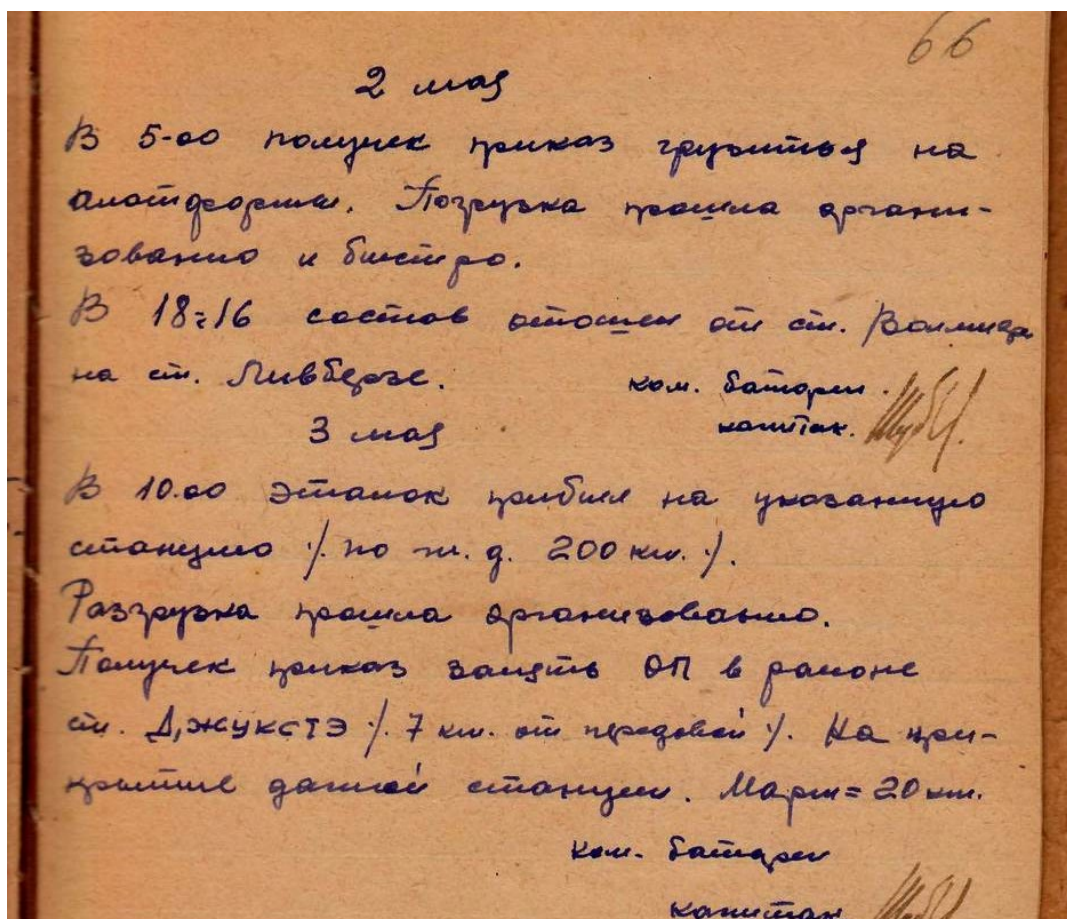 66
2 мая
В 5-00 получен приказ грузиться на
платформы. Погрузка прошла органи-
зованно и быстро.
В 18=16 состав отошел от ст. Волмар
на ст. Ливберзе.
ком. батареи
капитан.
3 мая
В 10.00 эталон прибыл на указанную
станцию ·/. по ж. д. 200 км. ·/.
Разгрузка прошла организованно.
Получен приказ занять ОП в районе
ст. Джукстэ ·/. 7 км. от передовой ·/. На при-
крытие данной станции. Марш = 20 км.
ком. батареи
капитан